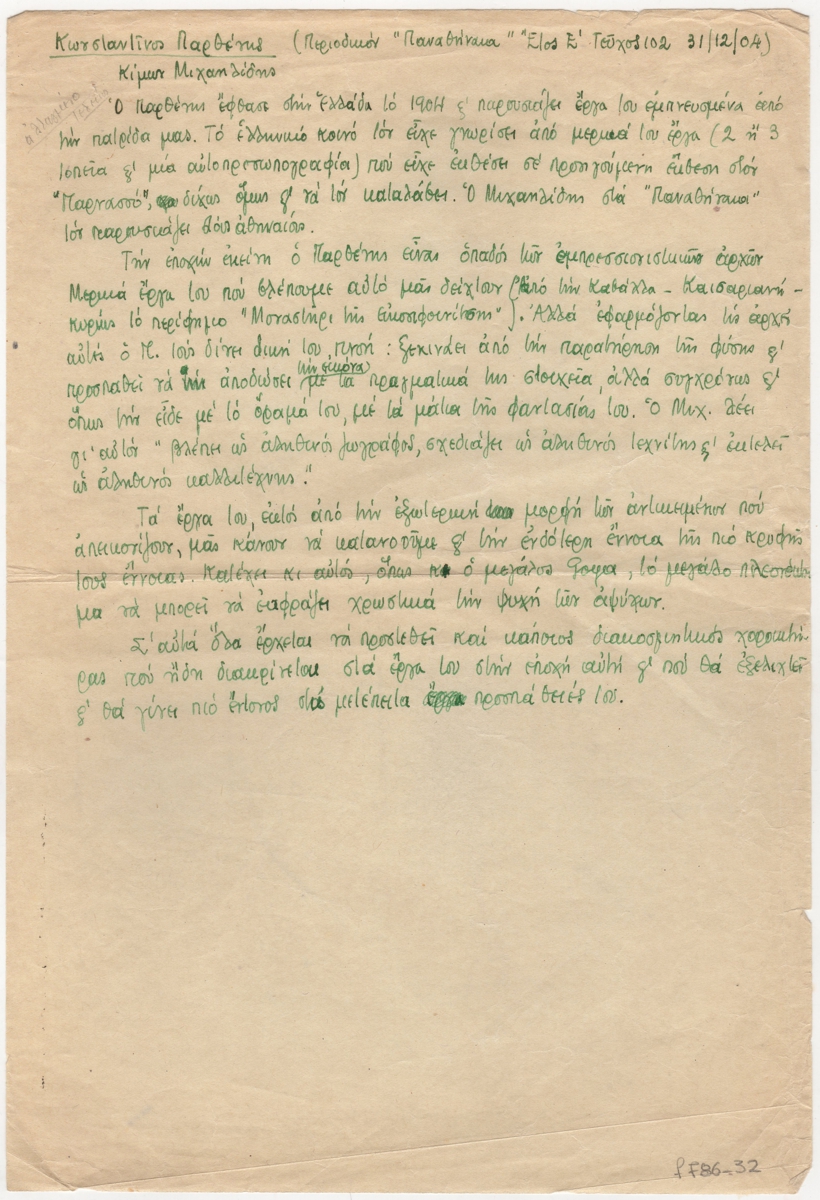 Κωνσταντῖνος Παρθένης (Περιοδικόν "Παναθήναια" Ἔτος Ε' Τεῦχος 102 31/12/04)
Κίμων Μιχαηλίδης
Ὁ Παρθένης ἔφθασε στήν Ἑλλάδα τό 1904 & παρουσιάζει ἔργα του ἐμπνευσμένα ἀπό
τήν πατρίδα μας. Τό ἑλληνικό κοινό τόν εἶχε γνωρίσει ἀπό μερικά του ἔργα (2 ἤ 3
τοπεῖα & μία αὐτοπροσωπογραφία) πού εἶχε ἐκθέσει σέ προηγούμενη ἔκθεση στόν
"Παρνασσό", δίχως ὅμως & νά τόν καταλάβει. Ὁ Μιχαηλίδης στά "Παναθήναια"
τόν παρουσιάζει στούς ἀθηναίους.
Τήν ἐποχήν ἐκείνη ὁ Παρθένης εἶναι ὀπαδός τῶν ἐμπρεσσιονιστικῶν ἀρχῶν
Μερικά ἔργα του πού βλέπουμε αὐτό μᾶς δείχνουν (ἀπό τήν Καβάλλα - Καισαριανή -
κυρίως τό περίφημο "Μοναστῆρι τῆς Εἰκοσιφοινίσσης"). Ἀλλά ἐφαρμόζοντας τίς ἀρχές
αὐτές ὁ Π. τούς δίνει δική του πνοή : ξεκινάει ἀπό τήν παρατήρηση τῆς φύσης &
προσπαθεῖ νά ἀποδώσει τήν εἰκόνα με τα πραγματικά της στοιχεῖα, ἀλλά συγχρόνως &
ὅπως τήν εἶδε μέ τό ὅραμά του, μέ τά μάτια τῆς φαντασίας του. Ὁ Μιχ. λέει
γι' αὐτόν "βλέπει ὡς ἀληθινός ζωγράφος, σχεδιάζει ὡς ἀληθινός τεχνίτης & ἐκτελεῖ
ὡς ἀληθινός καλλιτέχνης."
Τά ἔργα του, ἐκτός ἀπό τήν ἐξωτερική μορφή τῶν ἀντικειμένων πού
ἀπεικονίζουν, μᾶς κάνουν νά κατανοοῦμε & τήν ἐνδότερη ἔννοια τῆς πιό κρυφῆς
τους ἔννοιας. Κατέχει κι αὐτός, ὅπως ὁ μεγάλος , τό μεγάλο πλεονέκτη-
μα νά μπορεῖ νά ἐκφράζει χρωστικά τήν ψυχή τῶν ἀψύχων.
Σ' αὐτά ὅλα ἔρχεται νά προστεθεῖ καί κάποιος διακοσμητικός χαρακτή-
ρας πού ἤδη διακρίνεται στά ἔργα του στήν ἐποχή αὐτή & πού θά ἐξελιχτεῖ
& θά γίνει πιό ἔντονος στίς μετέπειτα προσπάθειές του.
F86-32